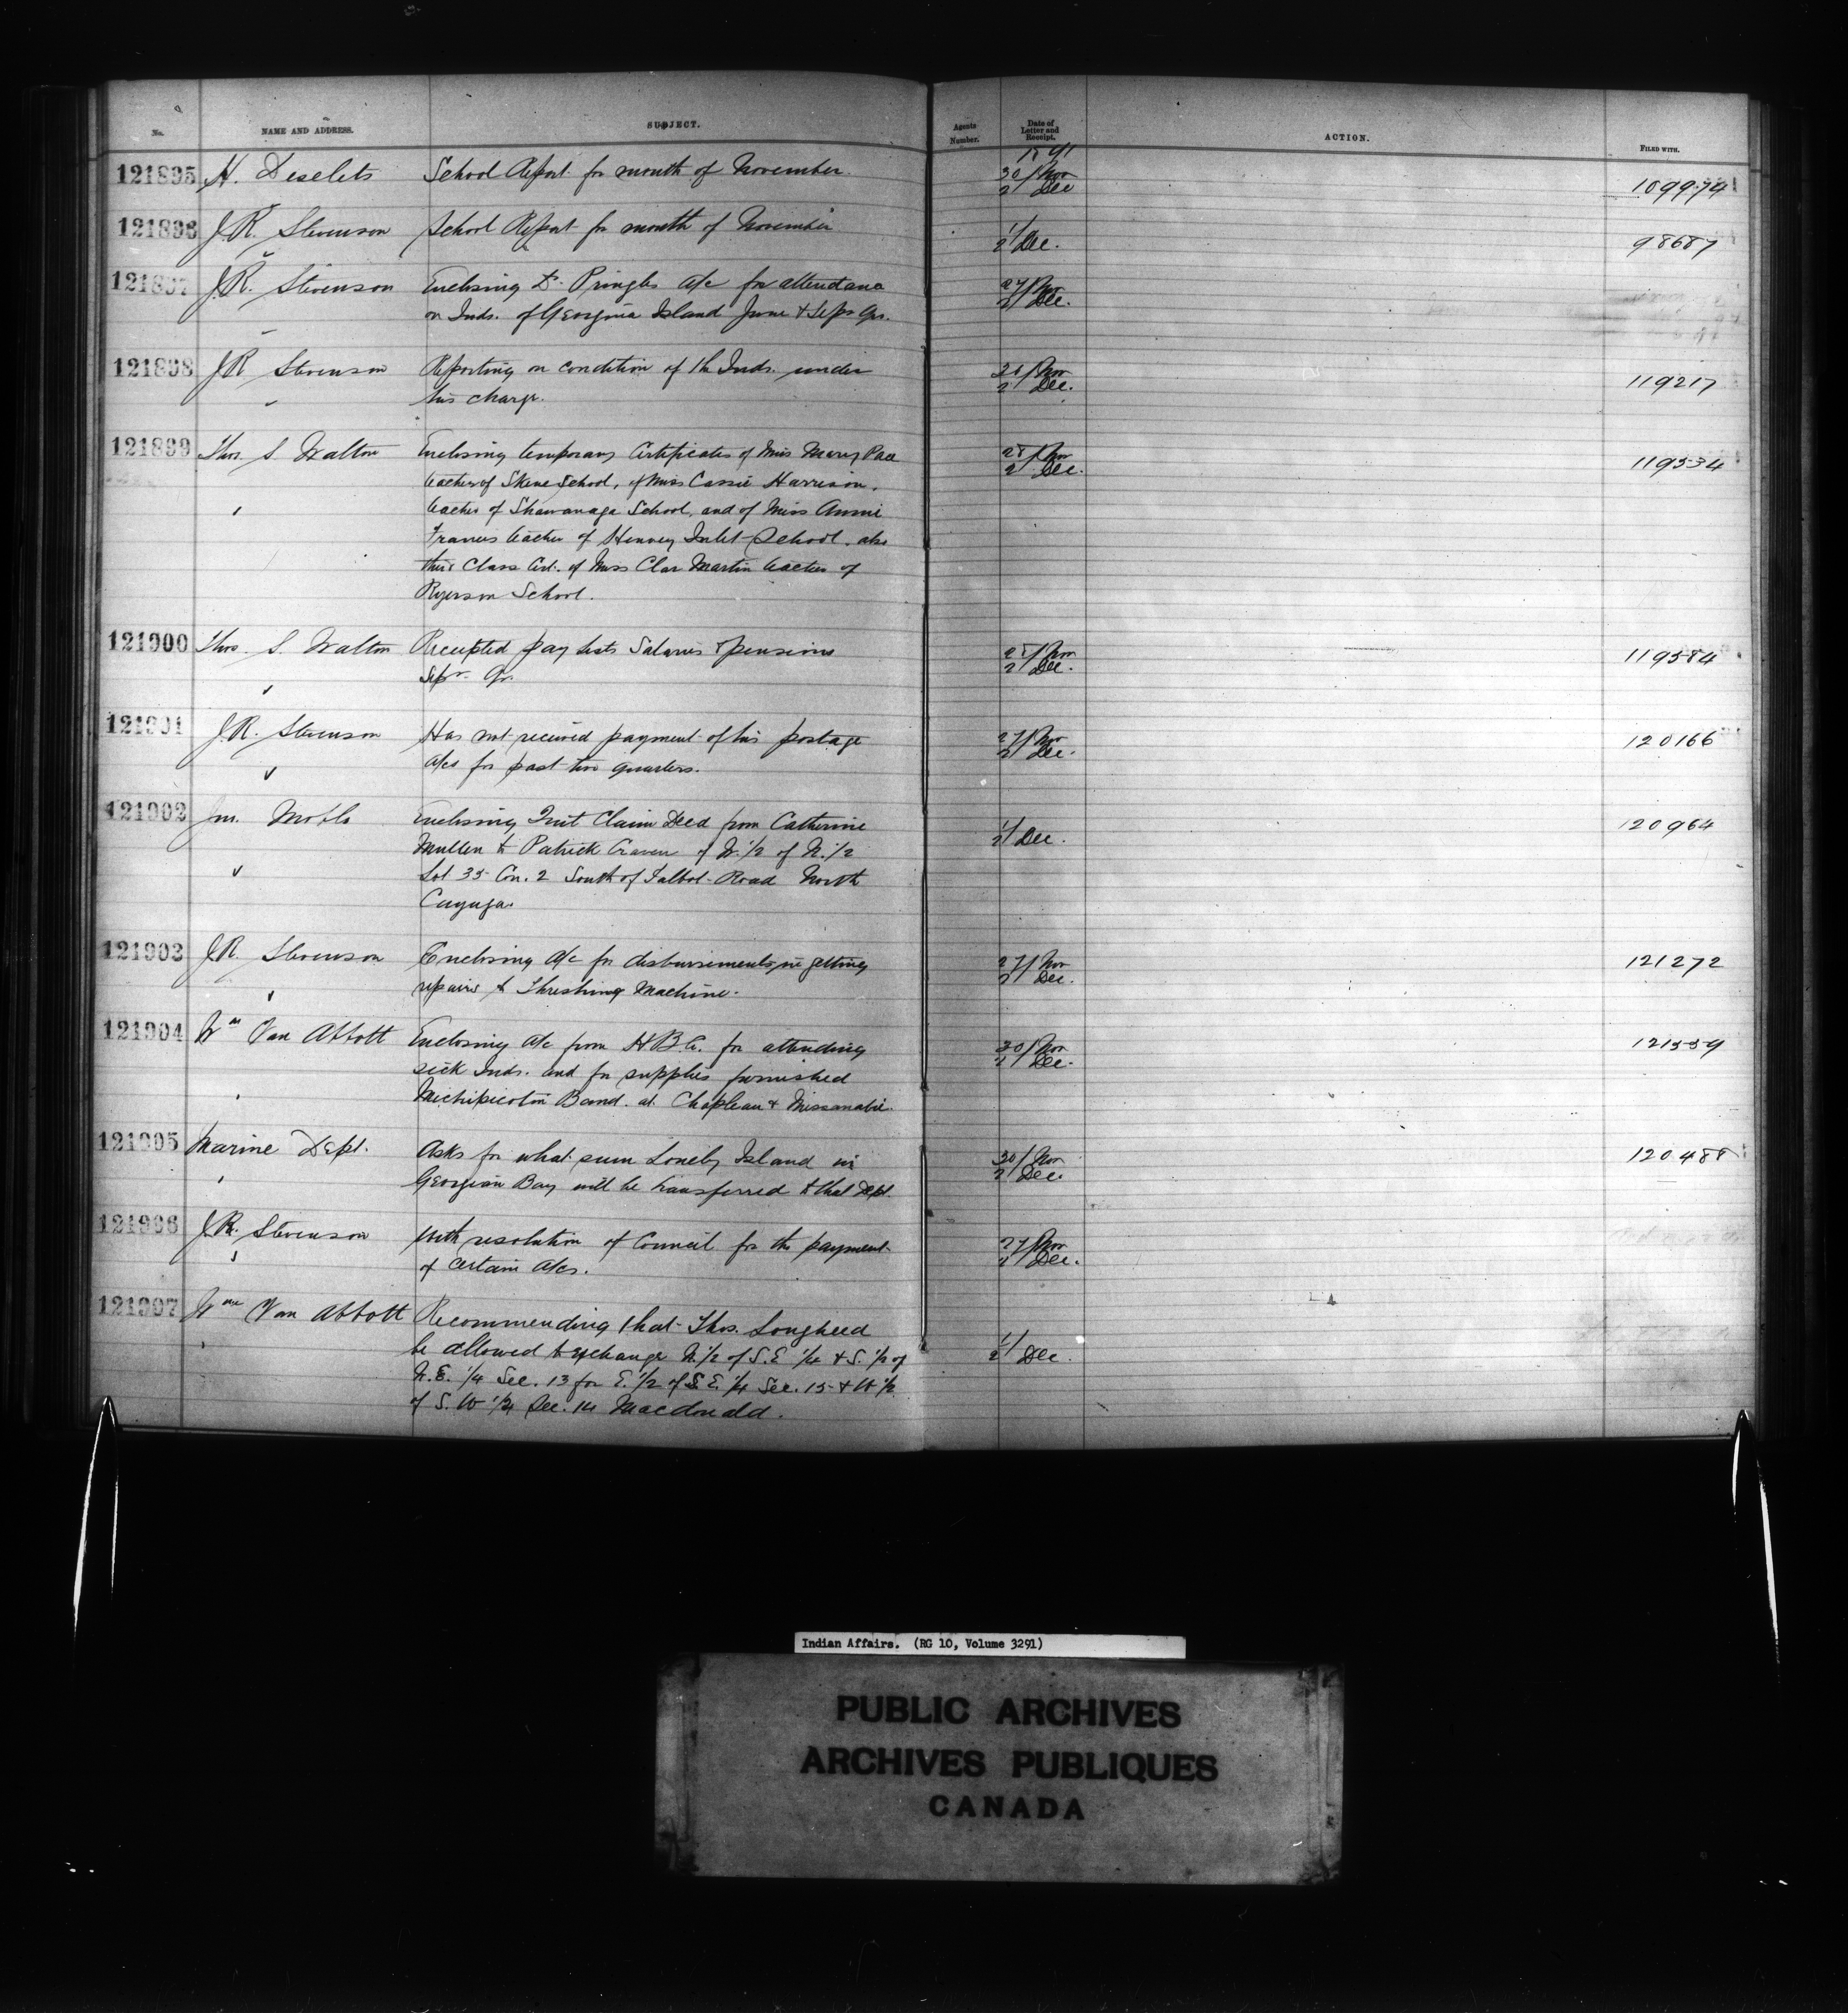 No. NAME AND ADDRESS. SUBJECT. Agents Number. Date of Letter and Receipt. ACTION. FILED WITH.
1891
121895 H. Deselets School Report for month of November. 30/Nov 2/Dec 109974
121896 J.R. Stevenson School Report for month of November 1/2/Dec. 98687
121897 J.R. Stevenson Enclosing Dr. Pringles a/c for attendance 27/Nov 2/Dec.
on Inds. of Georgina Island June & Sepr Qrs.
121898 J.R. Stevenson Reporting on condition of the Inds. under Nov 2/Dec. 119217
his charge.
121899 Thos. S. Walton Enclosing temporary Certificates of Miss Mary Pace 28/Nov 2/Dec. 119534
teacher of Skene School, of Miss Cassie Harrison,
teacher of Shawanaga School, and of Miss Annie
Frances teacher of Henvey Inlet School. also
third Class Cert. of Miss Clar Martin teacher of
Ryerson School.
121900 Thos. S. Walton Receipted pay lists Salaries & pensions 28/Nov 2/Dec. 119584
Sepr. Qr.
121901 J.R. Stevenson Has not received payment of his postage 27/Nov 2/Dec. 120166
a/cs for past two quarters.
121902 Jno. Enclosing Quit Claim Deed from Catherine 1/2/Dec. 120964
Mullen to Patrick Craven of W. 1/2 of N. 1/2
Lot 35 Con. 2 South of Talbot Road North
Cayuga.
121903 J.R. Stevenson Enclosing a/c for disbursements in getting 27/Nov 2/Dec. 121272
repairs to Threshing Machine.
121904 Wm Van Abbott Enclosing a/c from H.B.C. for attending 30/Nov 2/Dec. 121559
sick Inds. and for supplies furnished
Michipicoten Band. at Chapleau & Missanabie.
121905 Marine Dept. Asks for what sum Lonely Island in 30/Nov 2/Dec. 120488
Georgian Bay will be transferred to that Dept.
121906 J.R. Stevenson With resolution of Council for the payment 27/Nov 2/Dec.
of certain a/cs.
121907 Wm Van Abbott Recommending that Thos. Lougheed 1/2/Dec.
be allowed to exchange N. 1/2 of S.E 1/4 & S. 1/2 of
N.E. 1/4 Sec. 13 for E. 1/2 of S.E. 1/4 Sec. 15 & W 1/2
of S. W 1/4 Sec. 14 Macdonald.
Indian Affairs. (RG 10, Volume 3291)
PUBLIC ARCHIVES
ARCHIVES PUBLIQUES
CANADA